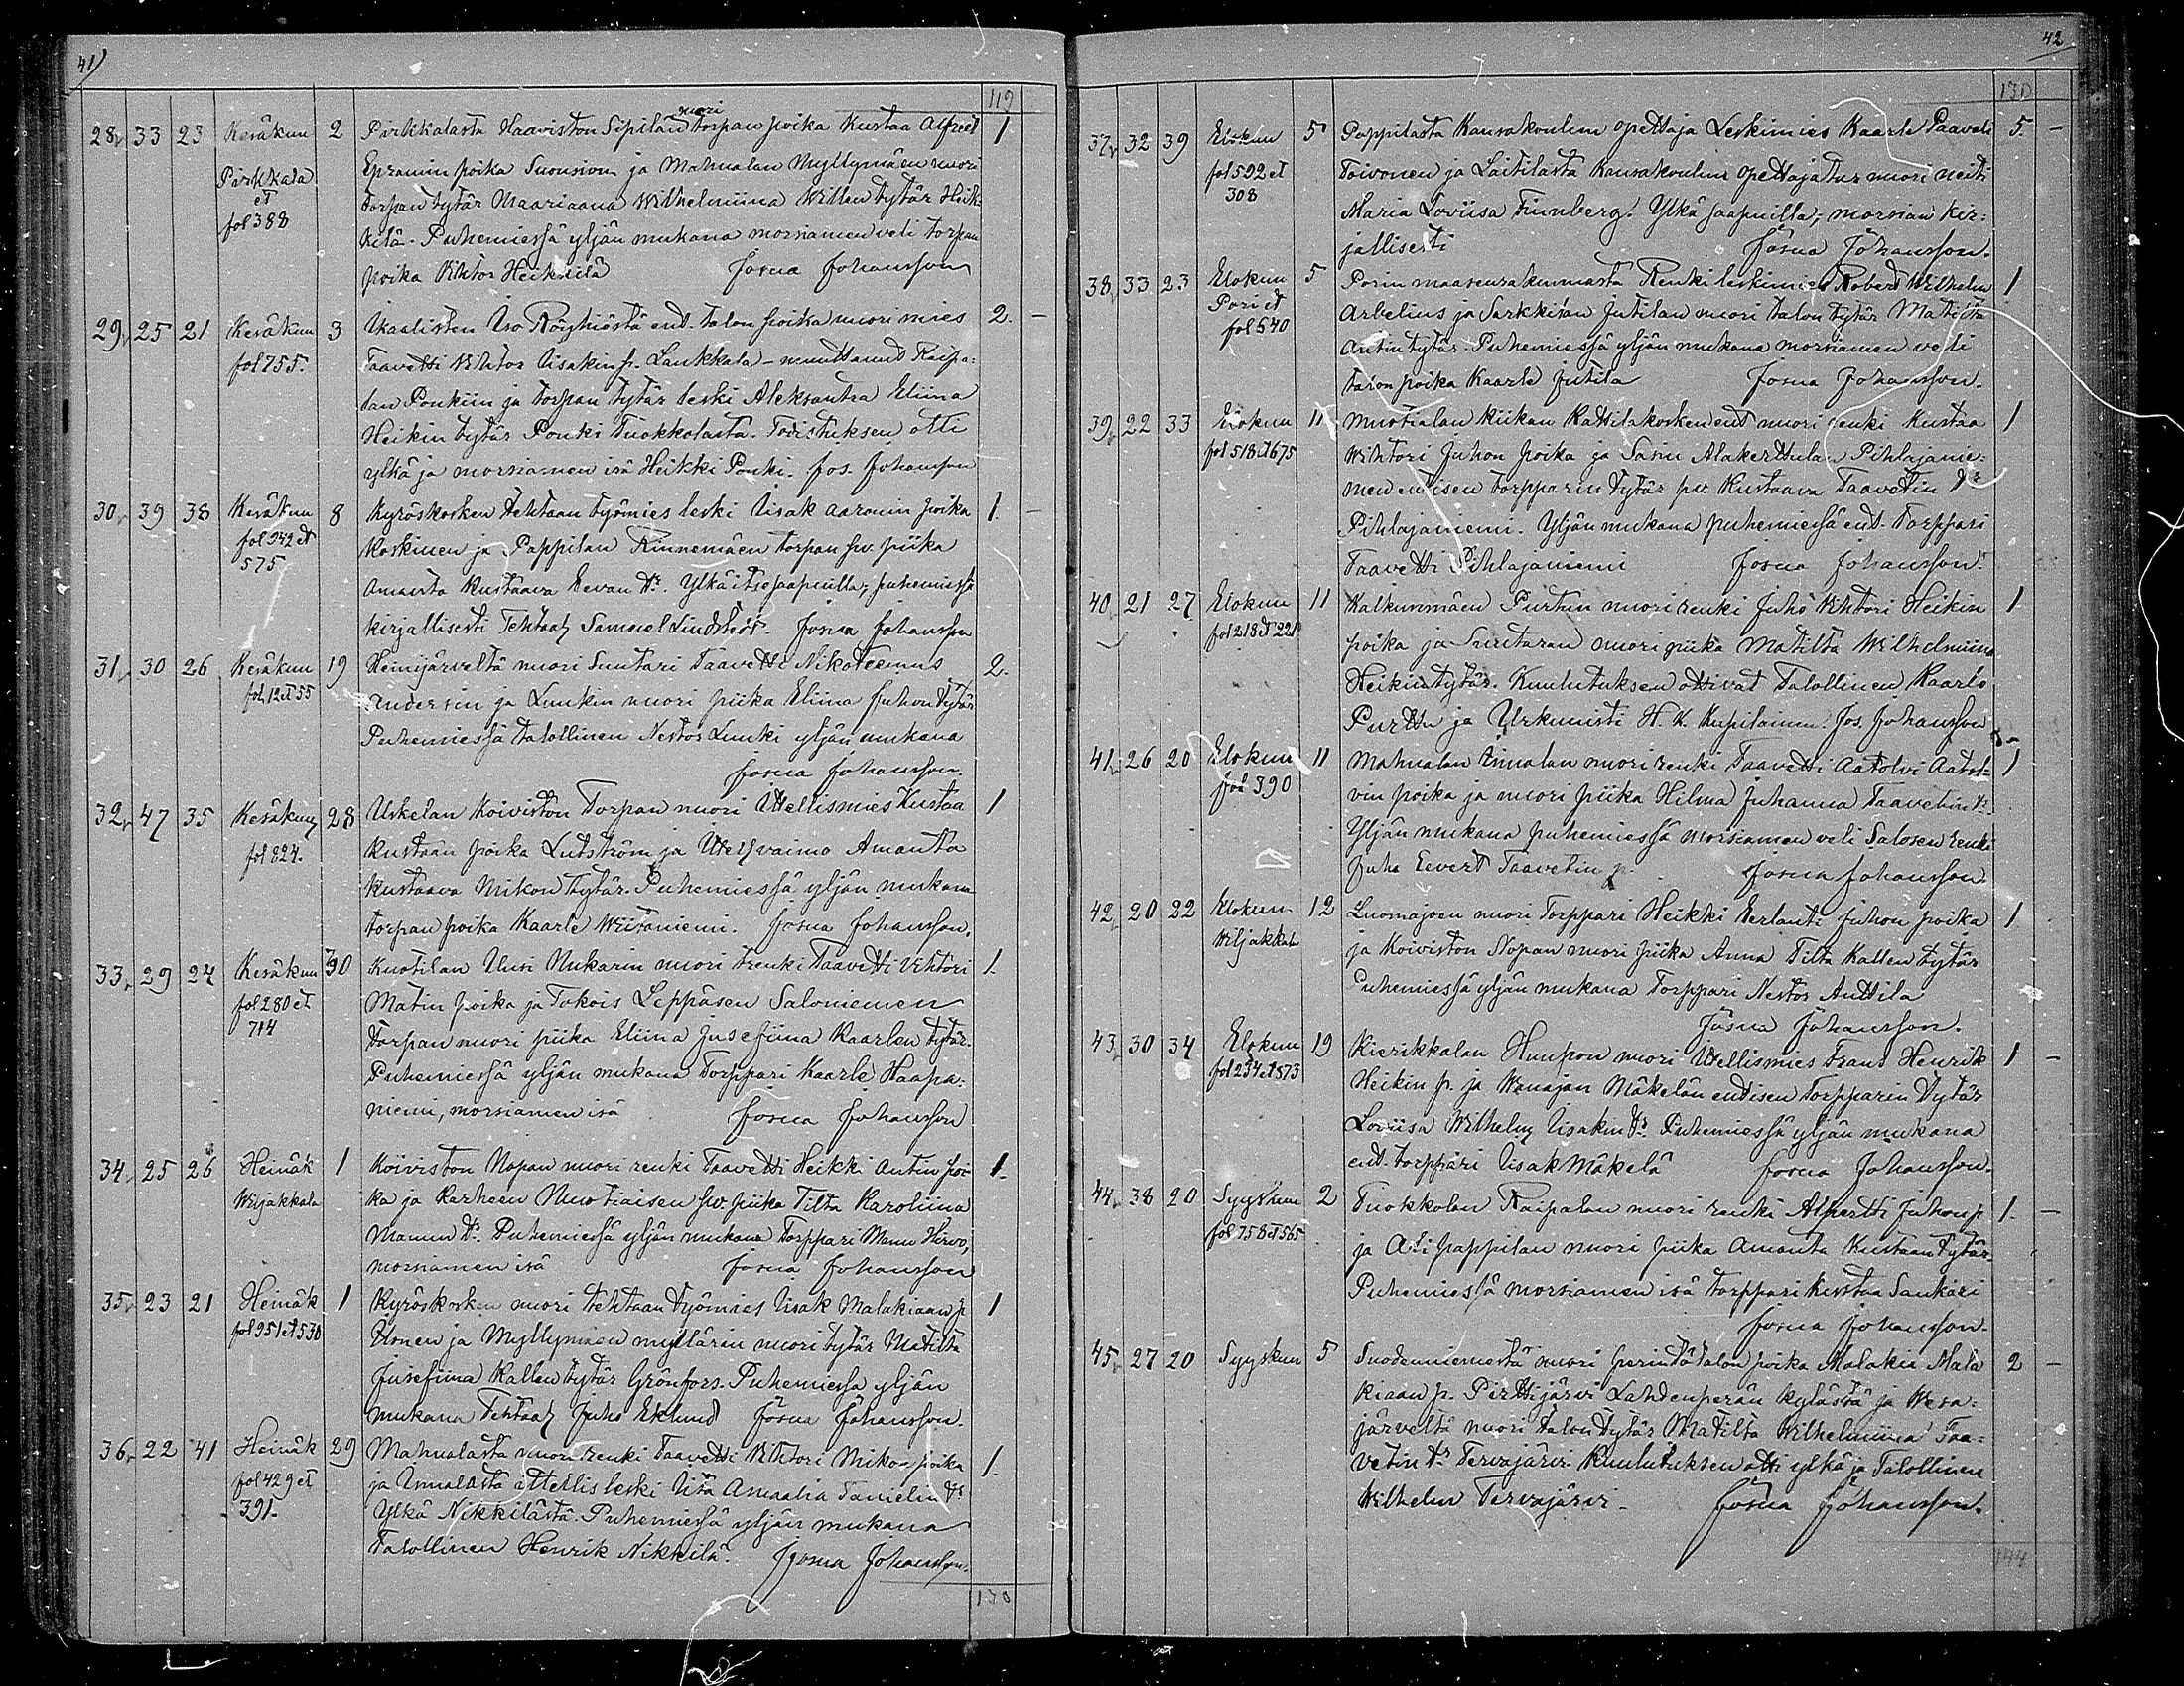 41)
119
28, 33 23 Kesäkun 2 Pirkkalasta Haaviston Sipilän nuori torpan poika Kustaa Alfred 1
Pirkkala et fol 388
Epramin poika Suonsivu ja Mahnalan Myllymäen nuori
torpan tytär Maariaana Wilhelmiina Willen tytär Heik-
kilä. Puhemiessä yljän mukana morsiamen veli torpan
poika Vihtor Heikkilä Josua Johansson
29, 25 21 Kesäkun 3 Ikaalisten Iso Röyhiöstä ent. talon poika nuori mies 2. –
fol 755.
Taavetti Vihtor Iisakin p. Laukkala – muuttanut Raipa-
lan Ponkiin ja torpan tytär leski Aleksantra Eliina
Heikin tytär Ponki Tuokkolasta. Todistuksen otti
ylkä ja morsiamen isä Heikki Ponki. Jos. Johansson
30, 39 38 Kesäkun 8 Kyröskosken tehtaan työmies leski Iisak Aaronin poika 1. –
fol 942 et 575
Koskinen ja Pappilan Rinnemäen torpan hv. piika
Amanta Kustaava Eevan tr. Ylkä itse saapuilla, puhemiessä
kirjallisesti Tehtaal Samuel Lindstör. Josua Johansson
31, 30 26 Kesäkun 19 Heinijärveltä nuori Suutari Taavetti Nikoteemus 2.
fol. 12 et 55
Andersin ja Luukin nuori piika Eliina Juhon tytär
Puhemiessä talollinen Nestor Luuki yljän mukana
Josua Johansson.
32, 47 35 Kesäkun 28 Uskelan Koiviston Torpan nuori Itellismies Kustaa 1
fol 824.
Kustaan poika Lutström ja Itels vaimo Amanta
Kustaava Mikon tytär. Puhemiessä yljän mukana
torpan poika Kaarle Wiitaniemi. Josua Johansson.
33, 29 24 Kesäkun 30 Kuotilan Uusi Mukarin nuori trenki Taavetti Vihtori 1.
fol 280 et 714
Matin poika ja Tokois Leppäsen Saloniemen
torpan nuori piika Eliina Jusefiina Kaarlen tytär.
Puhemiessä yljän mukana Torppari Kaarle Haapa-
niemi, morsiamen isä Josua Johansson
34, 25 26 Heinäk 1 Koiviston Nopan nuori renki Taavetti Heikki Antin poi- 1.
Wiljakkala
ka ja Karheen Muotiaisen hv. piika Tilta Karoliina
Manun tr. Puhemiessä yljän mukana Torppari Manu Hirvo,
morsiamen isä Josua Johansson
35, 23 21 Heinäk 1 Kyröskosken nuori tehtaan työmies Iisak Malakiaan p 1
fol 951 et 530
Ilonen ja Myllymäen myllärin nuori tytär Matilta
Jusefiina Kallen tytär Grönfors. Puhemiessä yljän
mukana Tehtaal Juho Eklund Josua Johansson.
36, 22 41 Heinäk 29 Mahnalasta nuori renki Taavetti Vihtori Mikon poika 1.
fol 429 et 391.
ja Unnalasta itellis leski Iita Amaalia Tanielin tr
Ylkä Nikkilästä. Puhemiessä yljän mukana
Talollinen Henrik Nikkilä. Josua Johansson.
130
42
130
37, 32 39 Elokun 5 Pappilasta Kansakoulun opettaja Leskimies Kaarle Paavali 5. –
fol 592 et 308
Toivonen ja Laitilasta Kansakoulun opettajatar nuori neiti
Maria Loviisa Finnberg. Ylkä saapuilla, morsian kir-
jallisesti Josua Johansson.
38, 33 23 Elokun 5 Porin maaseurakunnasta Renki leskimies Robert Wilhelm 1
Pori et fol 540
Arvelius ja Sarkkilan Jutilan nuori talon tytär Matilta
Antin tytär. Puhemiessä yljän mukana morsiamen veli
talon poika Kaarle Jutila Josua Johansson.
39, 22 33 Elokun 11 Muotialan Kiikan Kattilakosken ent nuori renki Kustaa 1
fol 518 et 675
Wihtori Juhon poika ja Sasin Alakerttulan Pihlajanie-
men entisen torpparin tytär pr Kustaava Taavetin tr
Pihlajaniemi. Yljän mukana puhemiessä ent. Torppari
Taavetti Pihlajaniemi Josua Johansson.
40, 21 27 Elokun 11 Kalkunmäen Purtun nuori renki Juho Vihtori Heikin 1
fol 218 et 221
poika ja Suutaran nuori piika Matilta Wilhelmiina
Heikin tytär. Kuulutuksen ottivat Talollinen Kaarlo
Purttu ja Urkunisti H. K. Kupilainen. Jos. Johansson
41, 26 20 Elokun 11 Mahnalan Unnalan nuori renki Taavetti Aatolvi Aatol- 1
fol 390
vin poika ja nuori piika Hilma Juhanna Taavetin tr.
Yljän mukana puhemiessä morsiamen veli Salosen renki
Juho Eevert Taavetin p. Josua Johansson.
42, 20 22 Elokun 12 Luomajoen nuori Torppari Heikki Erlanti Juhon poika 1
Wiljakkala
ja Koiviston Nopan nuori piika Anna Tilta Kallen tytär
Puhemiessä yljän mukana Torppari Nestor Anttila
Josua Johansson.
43, 30 34 Elokun 19 Kierikkalan Huupon nuori Itellismies Frans Henrik 1 –
fol 234 et 573
Heikin p. ja Wanajan Mäkelän entisen Torpparin tytär
Loviisa Wilhelm Iisakin tr. Puhemiessä yljän mukana
ent. torppari Iisak Mäkelä Josua Johansson.
44, 38 20 Syyskun 2 Tuokkolan Raipalan nuori renki Alpertti Juhon p 1. –
fol 758 et 565
ja Ali pappilan nuori piika Amanta Kustaan tytär.
Puhemiessä morsiamen isä torppari Kustaa Sankari
Josua Johansson.
45, 27 20 Syyskun 5 Suodenniemestä nuori perintö talon poika Malakia Mala 2 –
kiaan p. Pirttijärvi Lahdenperän kylästä ja Wesa-
järveltä nuori talon tytär Matilta Wilhelmiina Taa-
vetin tr Tervajärvi Kuulutuksen otti ylkä ja Talollinen
Wilhelm Tervajärvi – Josua Johansson.
144